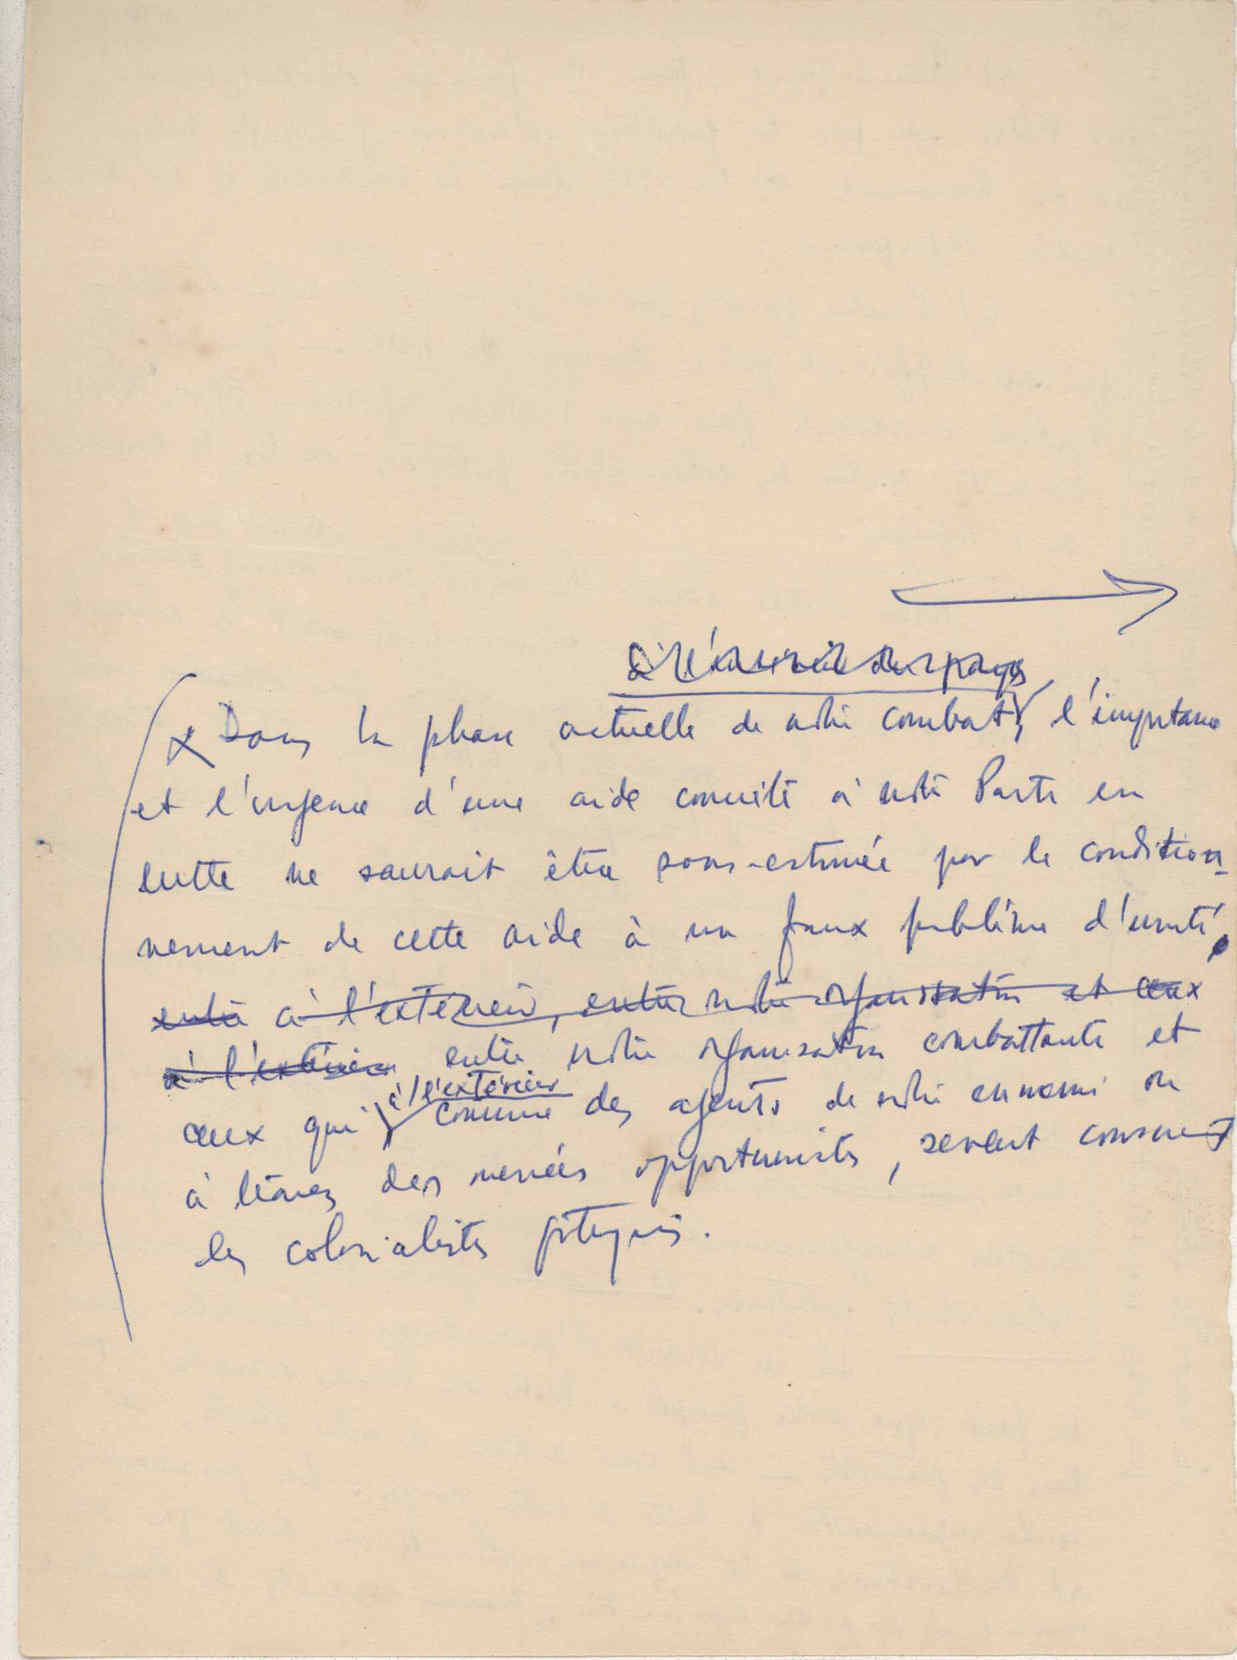 à l'intérieur du pays
x Dans la phase actuelle de notre combat, l'importance
et l'urgence d'une aide concrète à notre Parti en
lutte ne saurait être sous-estimée par le condition-
nement de cette aide à un faux problème d'unité,
entre à l'extérieur, entre notre organisation et ceux
à l'extérieur entre notre organisation combattante et
à l'extérieur
ceux qui comme des agents de notre ennemi ou
à des menées opportunistes, servent
les colonialistes portugais.